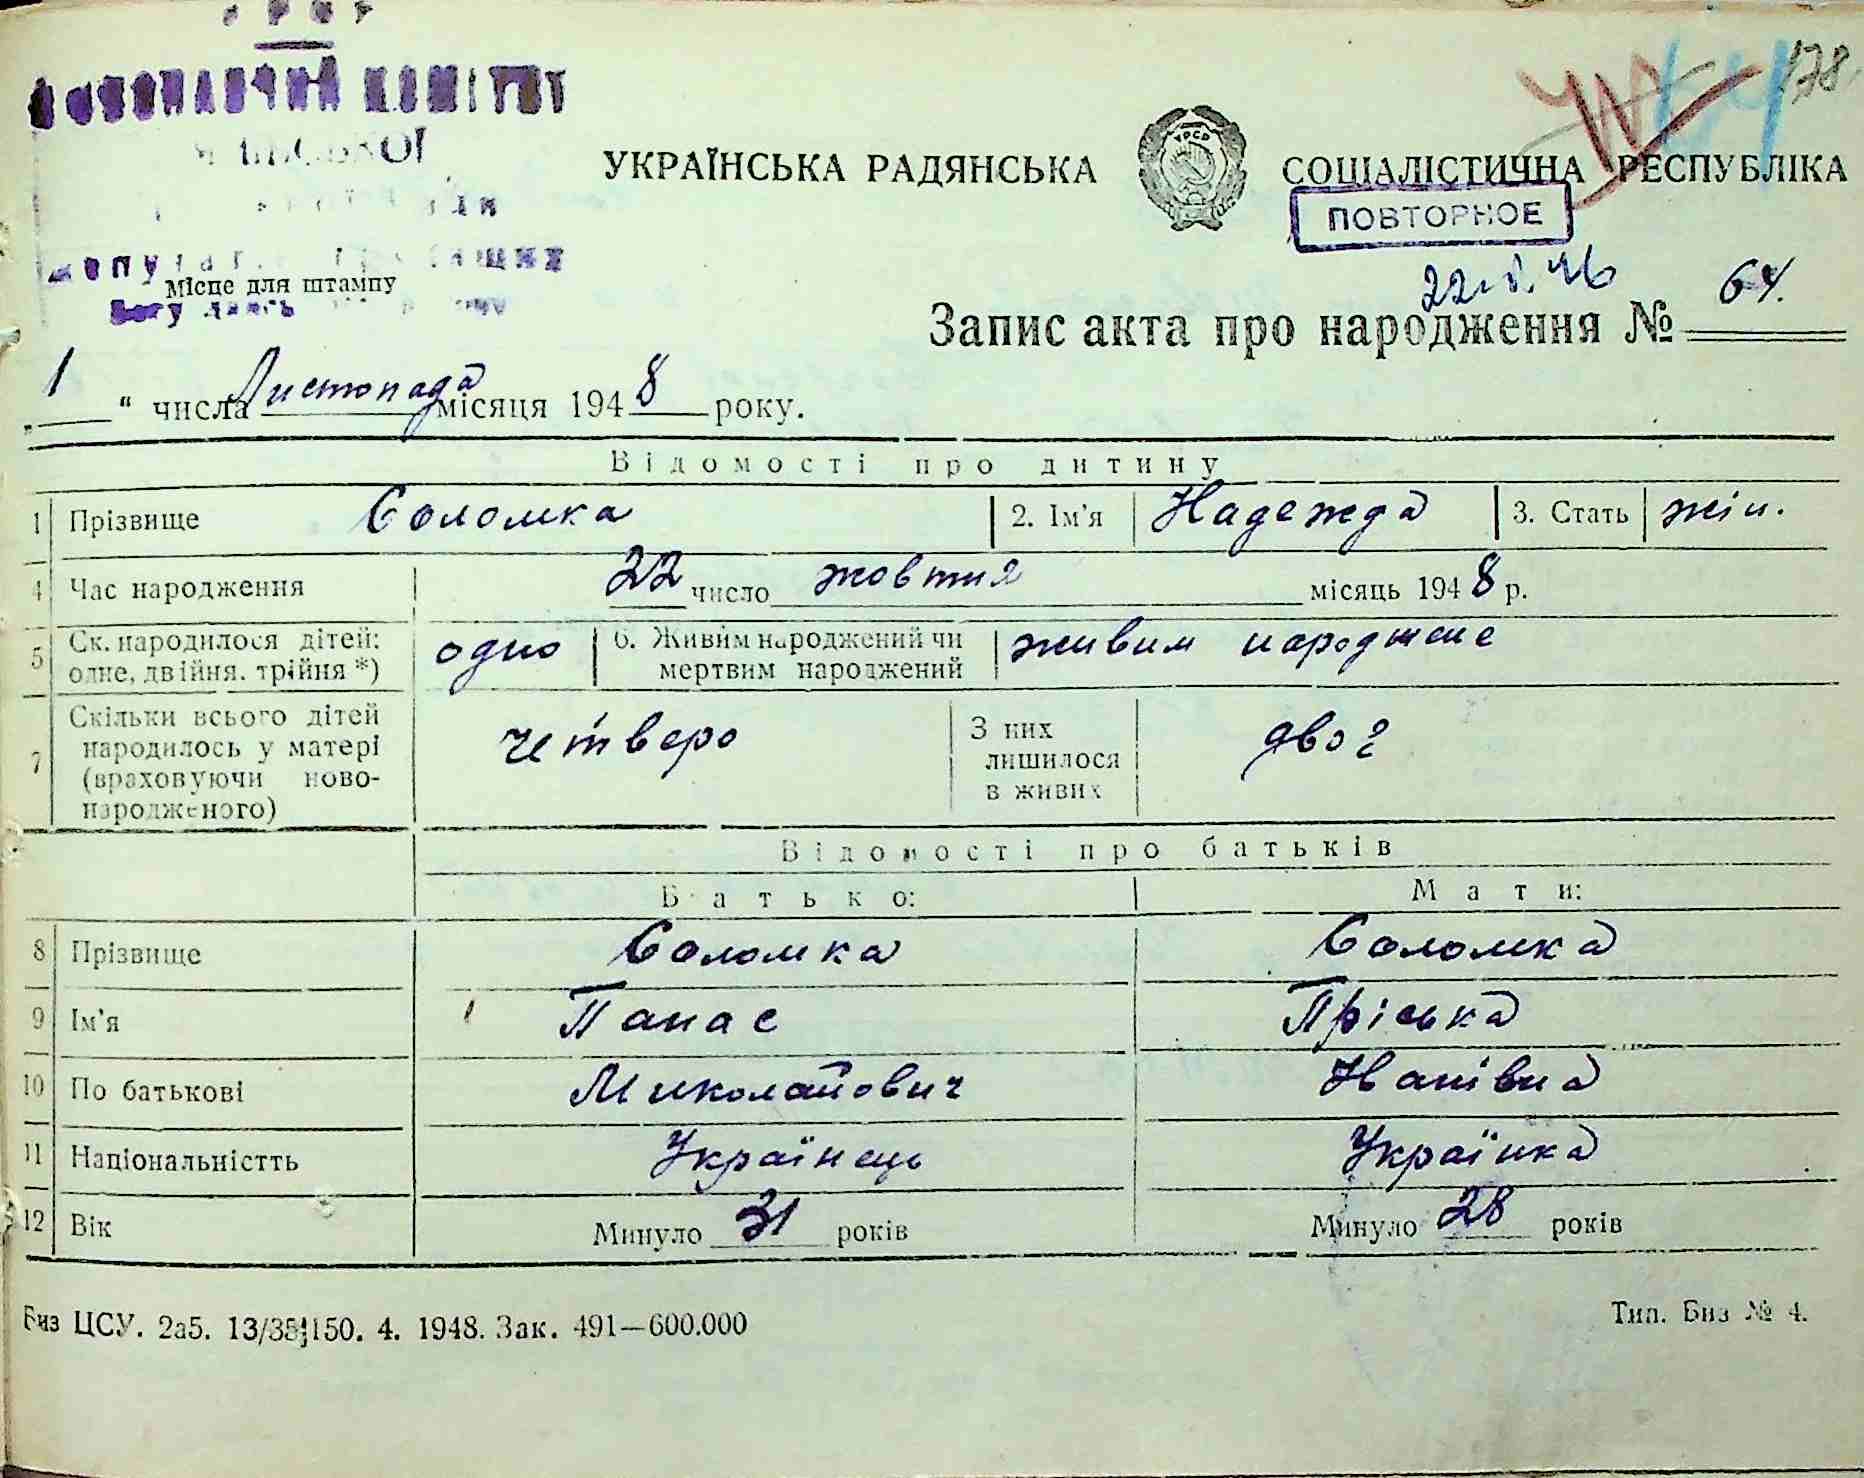 УРСР
ВИКОНАВЧИЙ КОМІТЕТ
Місце для штампу
178
УКРАЇНСЬКА РАДЯНСЬКА СОЦІАЛІСТИЧНА РЕСПУБЛІКА
УРСР
ПОВТОРНОЕ
Запис акта про народження № 64.
„ 1 “ числа Листопада місяця 1948 року.
Відомості про дитину
1 Прізвище Соломка 2. Ім'я Надежда 3. Стать жін.
4 Час народження 22 число жовтня місяць 1948 р.
5 Ск. народилося дітей: одне, двійня. трійня *) одно 6. Живим народжений чи мертвим народжений живим народжене
7 Скільки всього дітей народилось у матері (враховуючи ново-народженого) четверо З них лишилося в живих двоє
Відомості про батьків
Батько: Мати:
8 Прізвище Соломка Соломка
9 Ім'я Панас Пріська
10 По батькові Миколайович Іванівна
11 Національністть Українець Українка
12 Вік Минуло 31 років Минуло 28 років
Биз ЦСУ. 2а5. 13/38 150. 4. 1948. Зак. 491—600.000 Тип. Биз № 4.